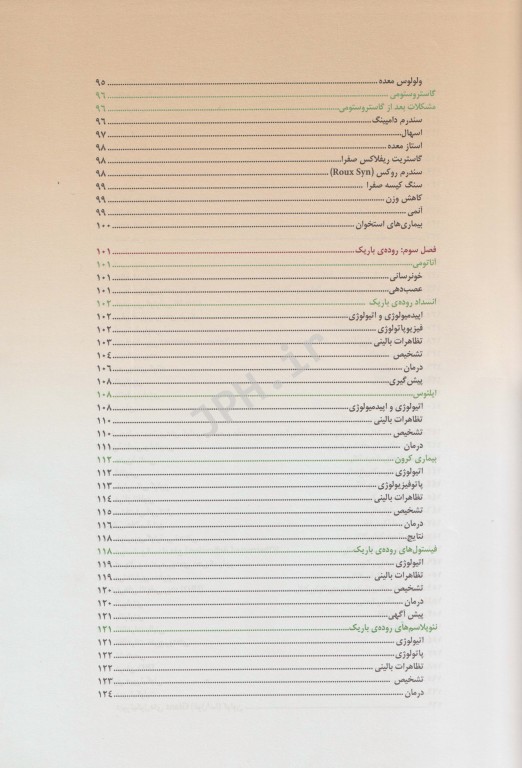 ولولوس معده ........ ۹۵
گاستروستومی ........ ۹۶
مشکلات بعد از گاستروستومی ........ ۹۶
سندرم دامپینگ ........ ۹۶
اسهال ........ ۹۷
استاز معده ........ ۹۸
گاستریت ریفلاکس صفرا ........ ۹۸
سندرم روکس (Roux Syn) ........ ۹۸
سنگ کیسه صفرا ........ ۹۹
کاهش وزن ........ ۹۹
آنمی ........ ۹۹
بیماری‌های استخوان ........ ۱۰۰
فصل سوم: روده‌ی باریک ........ ۱۰۱
آناتومی ........ ۱۰۱
خونرسانی ........ ۱۰۱
عصب‌دهی ........ ۱۰۱
انسداد روده‌ی باریک ........ ۱۰۲
اپیدمیولوژی و اتیولوژی ........ ۱۰۲
فیزیوپاتولوژی ........ ۱۰۲
تظاهرات بالینی ........ ۱۰۳
تشخیص ........ ۱۰۴
درمان ........ ۱۰۶
پیش‌گیری ........ ۱۰۸
ایلئوس ........ ۱۰۸
اتیولوژی و اپیدمیولوژی ........ ۱۰۸
تظاهرات بالینی ........ ۱۱۰
تشخیص ........ ۱۱۰
درمان ........ ۱۱۱
بیماری کرون ........ ۱۱۲
اتیولوژی ........ ۱۱۲
پاتوفیزیولوژی ........ ۱۱۳
تظاهرات بالینی ........ ۱۱۴
تشخیص ........ ۱۱۵
درمان ........ ۱۱۶
نتایج ........ ۱۱۸
فیستول‌های روده‌ی باریک ........ ۱۱۸
اتیولوژی ........ ۱۱۹
تظاهرات بالینی ........ ۱۱۹
تشخیص ........ ۱۲۰
درمان ........ ۱۲۰
پیش آگهی ........ ۱۲۱
نئوپلاسم‌های روده‌ی باریک ........ ۱۲۱
اتیولوژی ........ ۱۲۱
پاتولوژی ........ ۱۲۲
تظاهرات بالینی ........ ۱۲۲
تشخیص ........ ۱۲۳
درمان ........ ۱۲۴
JPH.ir